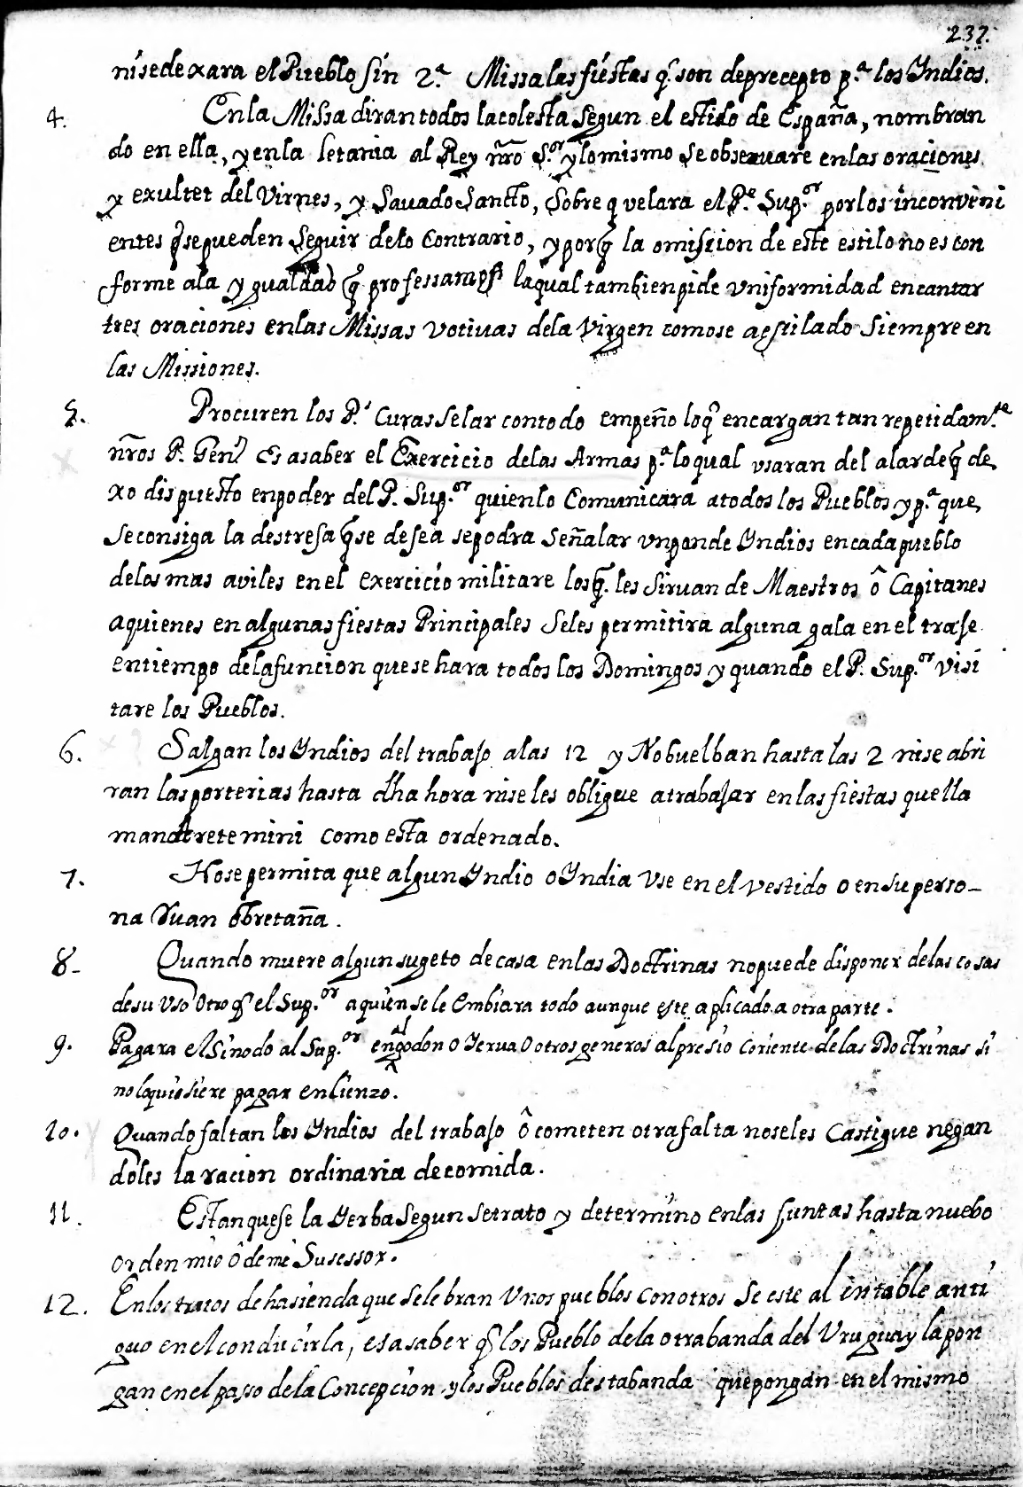 237.
nisedexara el Pueblo sin 2.ª Missa las fiestas q.̃ son deprecepto p.ª los Yndios.
4. En la Missa diran todos lacolesta segun el estilo de España, nombran
do en ella, y en la letania al Rey ñro S.or y lo mismo se obseruare enlas oraciones
y exultet del Virnes, y Sauado Sancto, sobre q velara el P.e Sup.or por los inconveni
entes q̃ sepueden seguir delo Contrario, y porq̃ la omission de este estilo no es con
forme ala ygualdad q̃ professamos laqual tambien pide vniformidad en cantar
tres oraciones enlas Missas votiuas dela Virgen como se aestilado siempre en
las Missiones.
5. Procuren los P.s Curas selar contodo empeño loq̃ encargan tan repetidam.te
ñros P. Gen.s Es asaber el Exercicio delas Armas p.ª lo qual vsaran del alarde q̃ de
xo dispuesto enpoder del P. Sup.or quien lo Comunicara atodos los Pueblos y p.ª que
seconsiga la destresa q̃ se desea sepodra señalar vn par de Yndios en cada pueblo
delos mas aviles en el exercicio militare los q̃. les siruan de Maestros ô Capitanes
aquienes en algunas fiestas Principales seles permitira alguna gala en el traje
entiempo dela funcion que se hara todos los Domingos y quando el P. Sup.or visi
tare los Pueblos.
6. Salgan los Yndios del trabajo alas 12 y No buelban hasta las 2 nise abri
ran las porterias hasta dha hora nise les obligue atrabajar en las fiestas que lla
man tretemini como esta ordenado.
7. No se permita que algun Yndio o Yndia vse en el vestido o en su perso-
na Ruan o bretaña.
8- Quando muere algun sugeto de casa en las Doctrinas no puede disponer delas cosas
desu vso Otro q̃ el Sup.or aquien se le Embiara todo aunque este aplicado a otra parte.
9. Pagara el Sinodo al Sup.or en algodon o Yerua o otros generos al presio coriente delas Doctrinas si
no lo quisiere pagar en lienzo.
10. Quando faltan los Yndios del trabajo ô cometen otra falta no seles Castigue negan
doles la racion ordinaria de comida.
11. Estanquese la Yerba segun se trato y determino en las juntas hasta nuebo
orden mio ô de me Susessor.
12. En los tratos de hasienda que selebran Vnos pueblos con otros se este al entable anti
guo en el conducirla, es a saber q̃ los Pueblo dela otra banda del Vruguay la pon
gan en el passo de la Concepcion y los Pueblos destabanda que pongan en el mismo